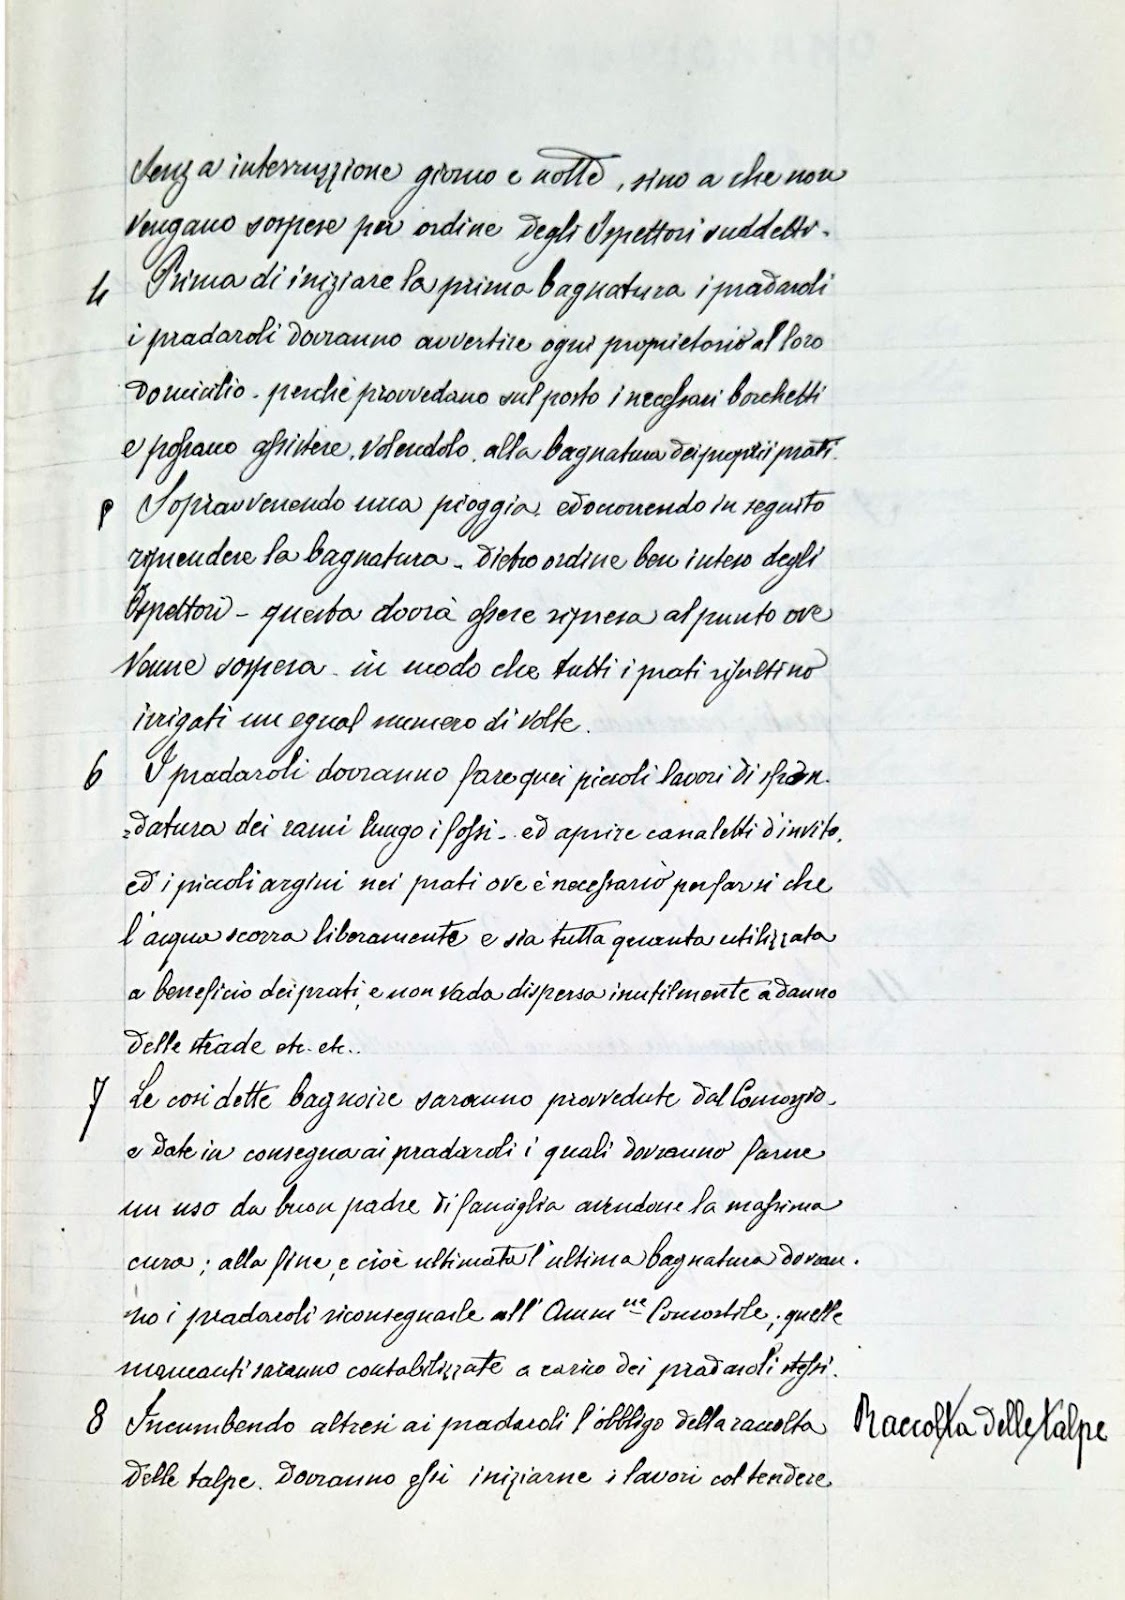 senza interruzzione giorno e notte, sino a che non
vengano sospese per ordine degli Ispettori suddetti.
4 Prima di iniziare la prima bagnatura i pradaroli
i pradaroli dovranno avvertire ogni proprietario al loro
domicilio - perchè provvedano sul posto i necessari borchetti
e possano assistere, volendolo, alla bagnatura dei proprii prati.
5 Sopravvenendo una pioggia, ed occorrendo in seguito
riprendere la bagnatura - dietro ordine ben inteso degli
Ispettori - questa dovrà essere ripresa al punto ove
venne sospesa - in modo che tutti i prati risultino
irrigati un egual numero di volte.
6 I pradaroli dovranno fare quei piccoli lavori di sfron-
=datura dei rami lungo i fossi - ed aprire canaletti d'invito,
ed i piccoli argini nei prati ove è necessario per far si che
l'acqua scorra liberamente e sia tutta quanta utilizzata
a beneficio dei prati, e non vada dispersa inutilmente a danno
delle strade etc. etc..
7 Le cosi dette bagnoire saranno provvedute dal Consorzio -
e date in consegna ai pradaroli i quali dovranno farne
un uso da buon padre di famiglia avendone la massima
cura; alla fine, e cioè ultimata l'ultima bagnatura dovran-
no i pradaroli riconsegnarle all'Amm.ne Consortile; quelle
mancanti saranno contabilizzate a carico dei pradaroli stessi.
8 Incumbendo altresi ai pradaroli l'obbligo della raccolta
delle talpe. Dovranno essi iniziarne i lavori col tendere
Raccolta delle talpe